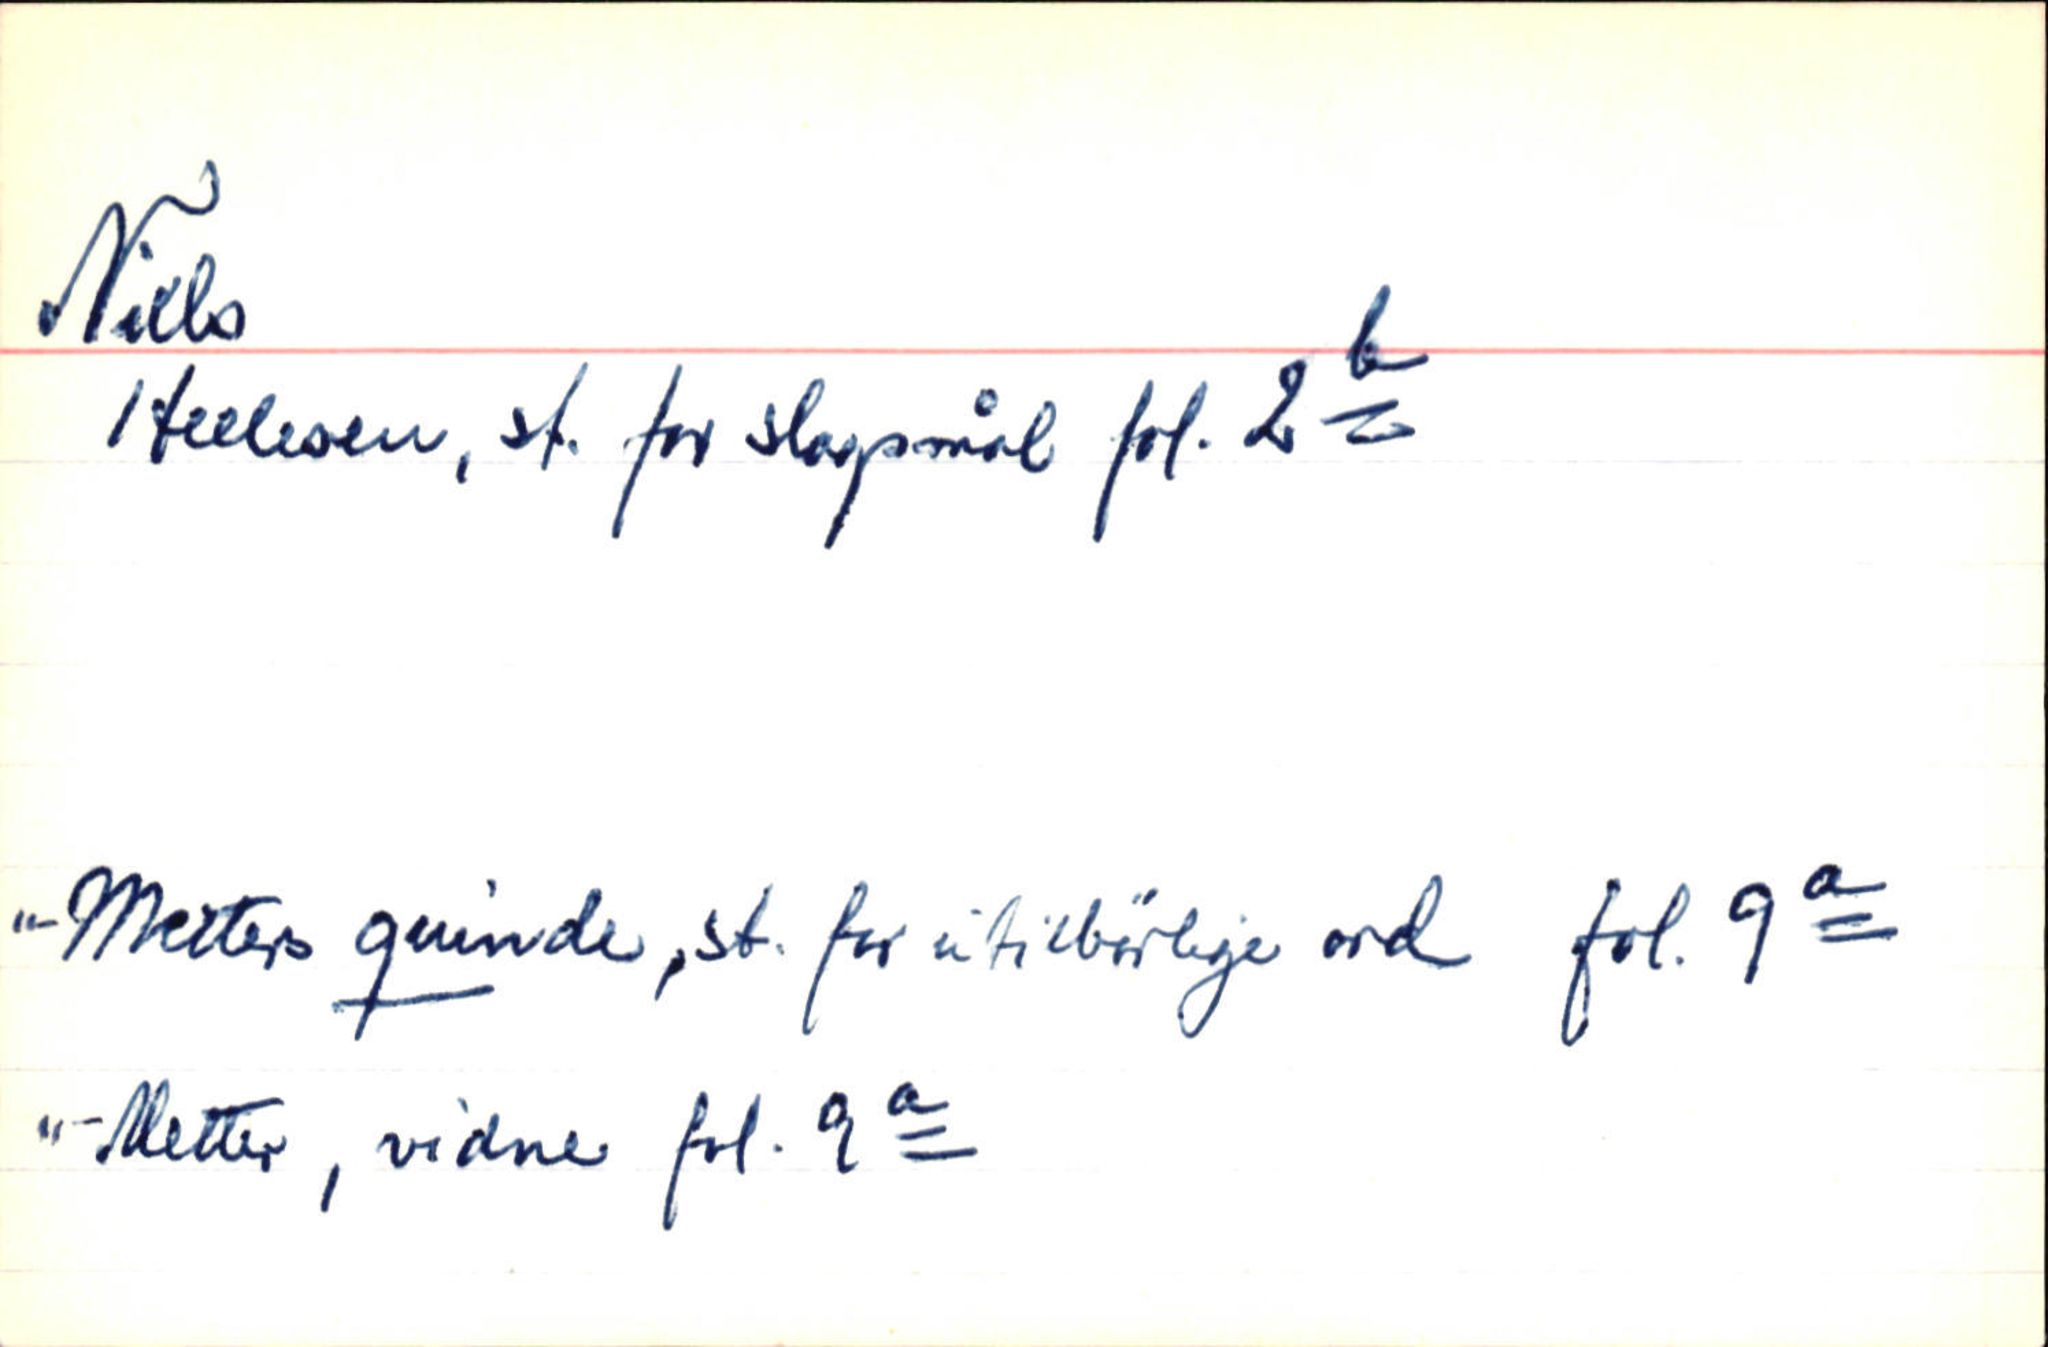 Niels
Hellesen, st. for slagsmål fol. 2 b
"- Metters quinde, st. for utilbörlige ord fol. 9 a
"- Metter, vidne fol. 9 a